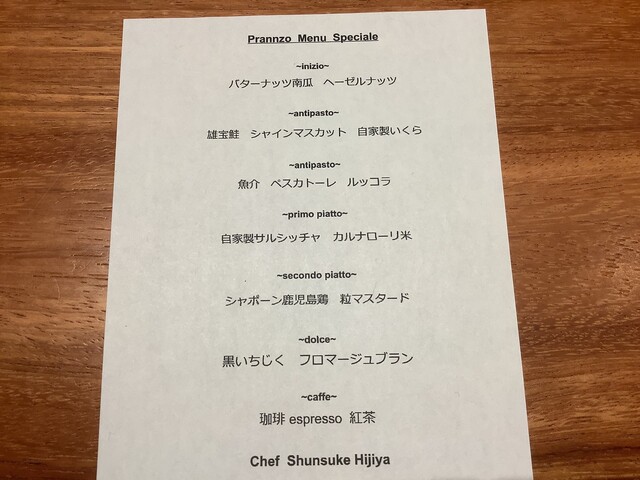 Prannzo Menu Speciale
~inizio~
バターナッツ南瓜 ヘーゼルナッツ
~antipasto~
雄宝鮭 シャインマスカット 自家製いくら
~antipasto~
魚介 ペスカトーレ ルッコラ
~primo piatto~
自家製サルシッチャ カルナローリ米
~secondo piatto~
シャポーン鹿児島鶏 粒マスタード
~dolce~
黒いちじく フロマージュブラン
~caffe~
珈琲 espresso 紅茶
Chef Shunsuke Hijiya